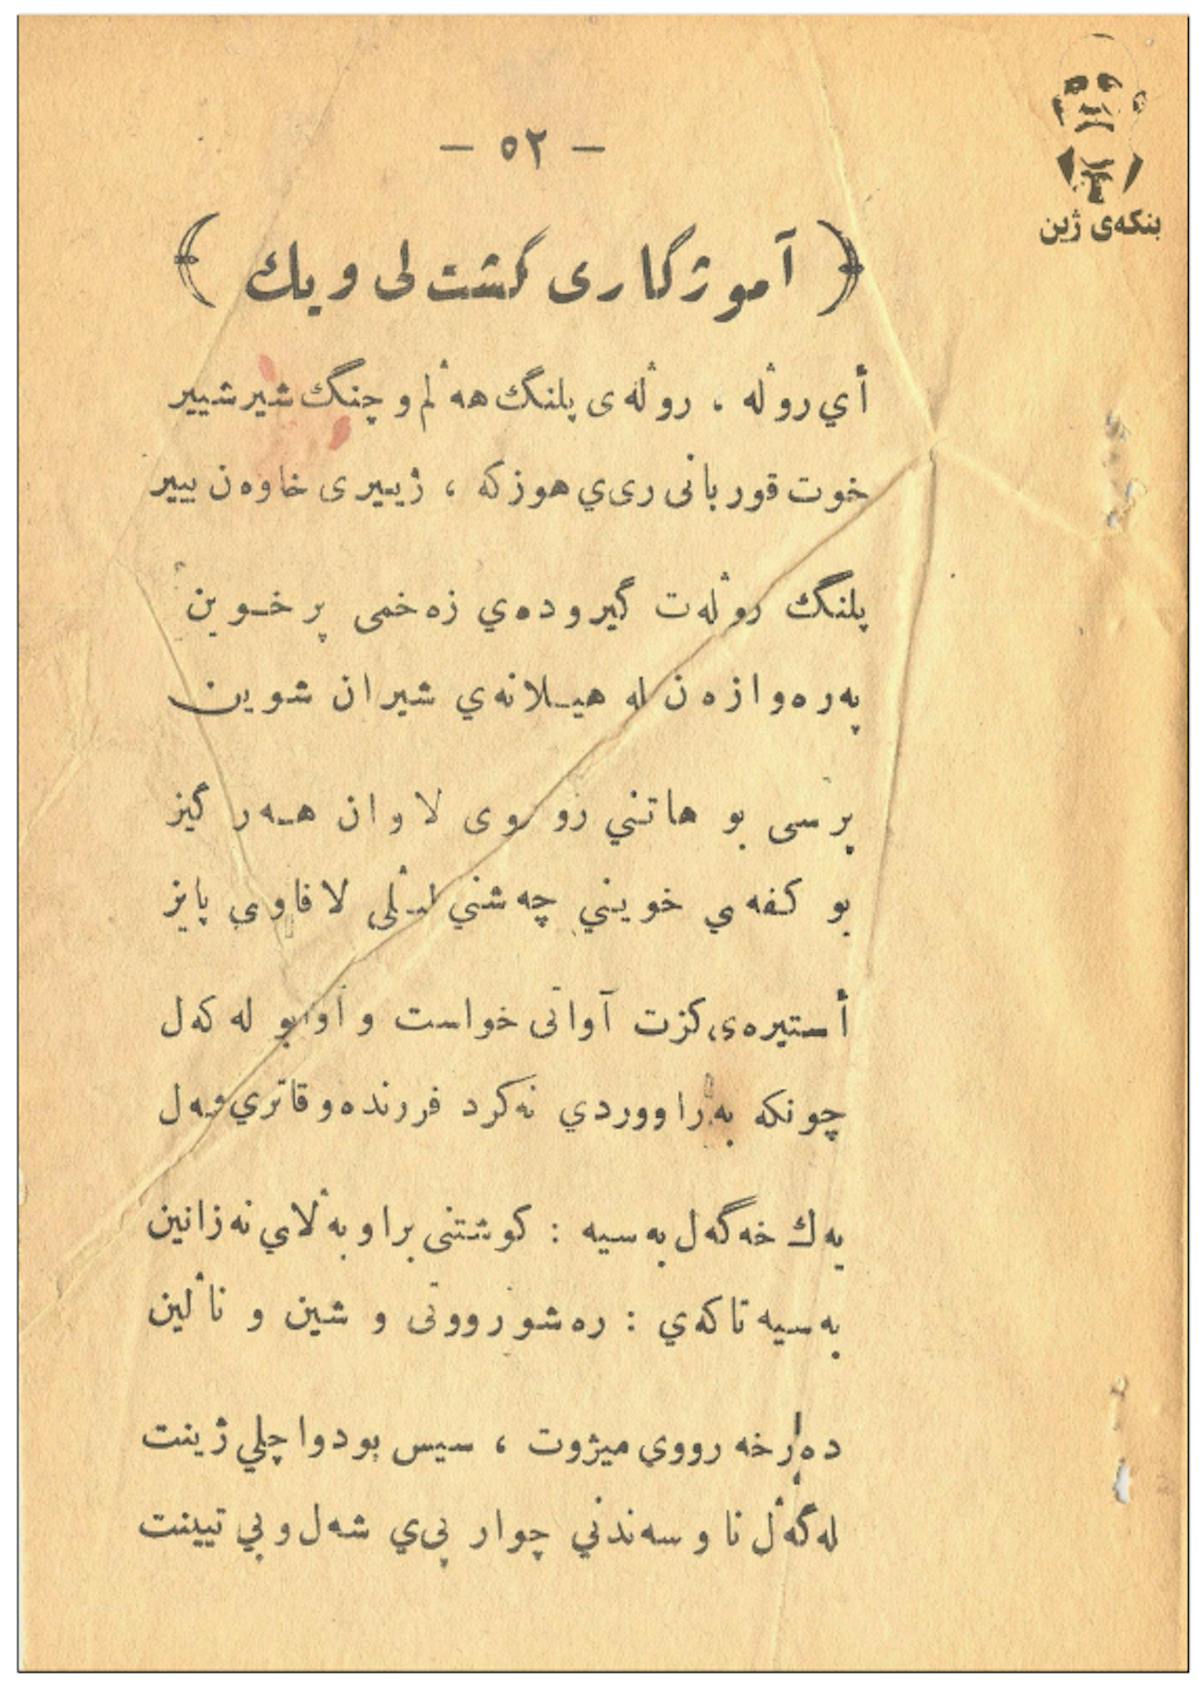 بنکەی ژین
— ٥٢ —
﴿ آموژگاری گشت لی و یك ﴾
أي روٚله ، روٚله‌ی پلنگ هه‌ٚلم و چنگ شیر شییر
خوت قوربانی ری‌ي هوزکه ، ژییری خاوه‌ن بییر
پلنگ روٚله‌ت گیروده‌ي زه‌خمی پر خـوین
په‌ره‌وازه‌ن له هیـلانه‌ي شیران شوین
پرسی بو هاتني رووی لاوان هـه‌ر گیز
بو کـفه‌ي خویني چه‌شني لیـٚلی لافاوی پایز
أستیره‌ی کزت آواتی خواست و آوابو له که‌ل
چونکه به‌راووردي نه‌کرد فررنده‌و قاتري
یه‌ك خه‌گه‌ل به‌سیه : کوشتنی براو به‌ٚلاي نه‌زانین
به‌سیه تاکه‌ي : ره‌شورووتی و شین و ناٚلین
ده‌رخه رووی میژوت ، سیس بودوا چلي ژینت
له‌گه‌ٚل ناو سه‌ندني چوار پی‌ي شه‌ل و بی تیینت